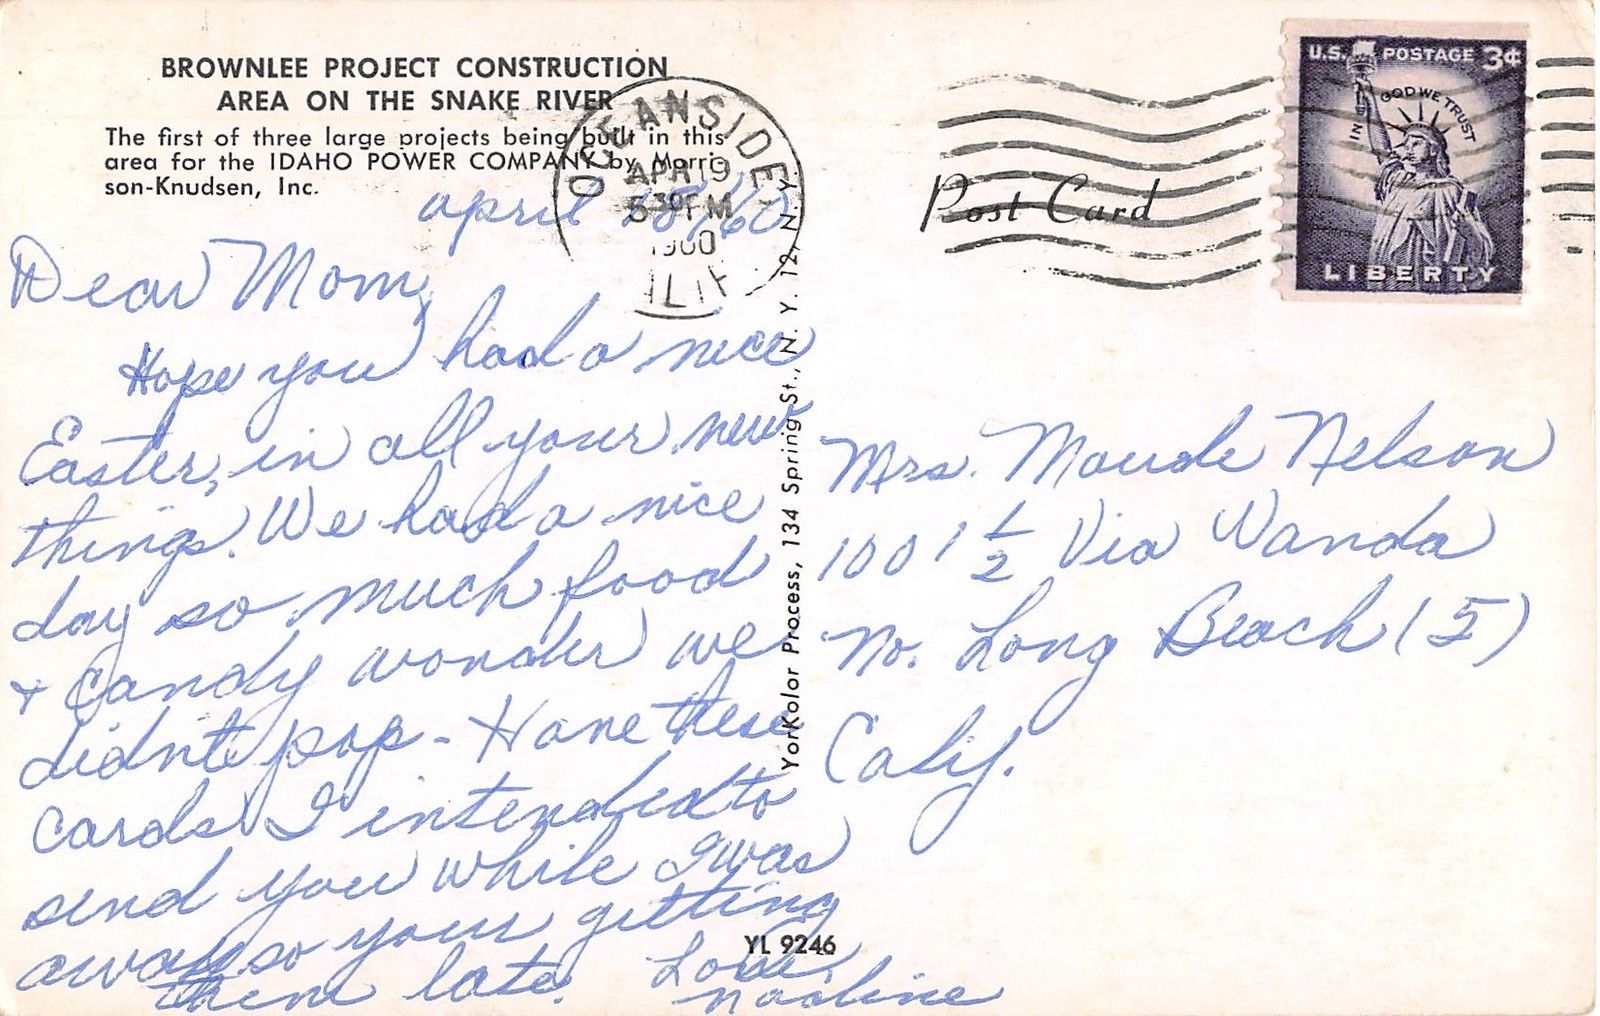 BROWNLEE PROJECT CONSTRUCTION
AREA ON THE SNAKE RIVER
The first of three large projects being built in this
area for the IDAHO POWER COMPANY by Morri-
son-Knudsen, Inc.
OCEANSIDE
APR 19
5 30 PM
1960
CALIF.
U.S. POSTAGE 3¢
IN GOD WE TRUST
LIBERTY
Post Card
april 18, '60
Dear Mom,
Hope you had a nice
Easter, in all your new
things. We had a nice
day so much food
+ candy wonder we
didn't pop - Have these
cards I intended to
send you while I was
away so your getting
them late.
Love,
Nadine
Yorkolor Process, 134 Spring St., N. Y. 12, N. Y.
YL 9246
Mrs. Maude Nelson
1001 1/2 Via Wanda
No. Long Beach (5)
Calif.